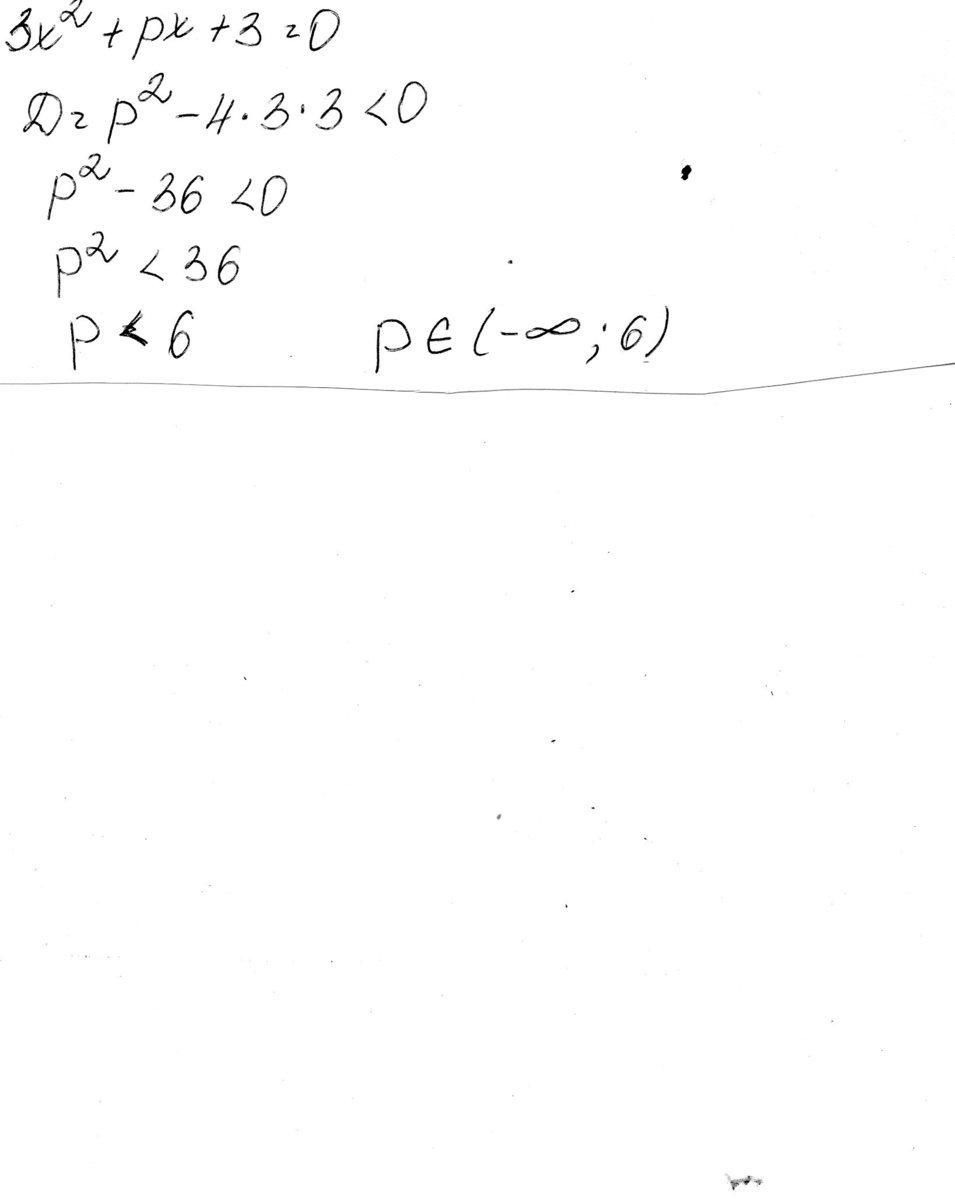 3x² + px + 3 = 0
D = p² - 4 · 3 · 3 < 0
p² - 36 < 0
p² < 36
p < 6 p ∈ (-∞; 6)